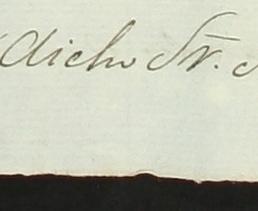 dicho Sr.